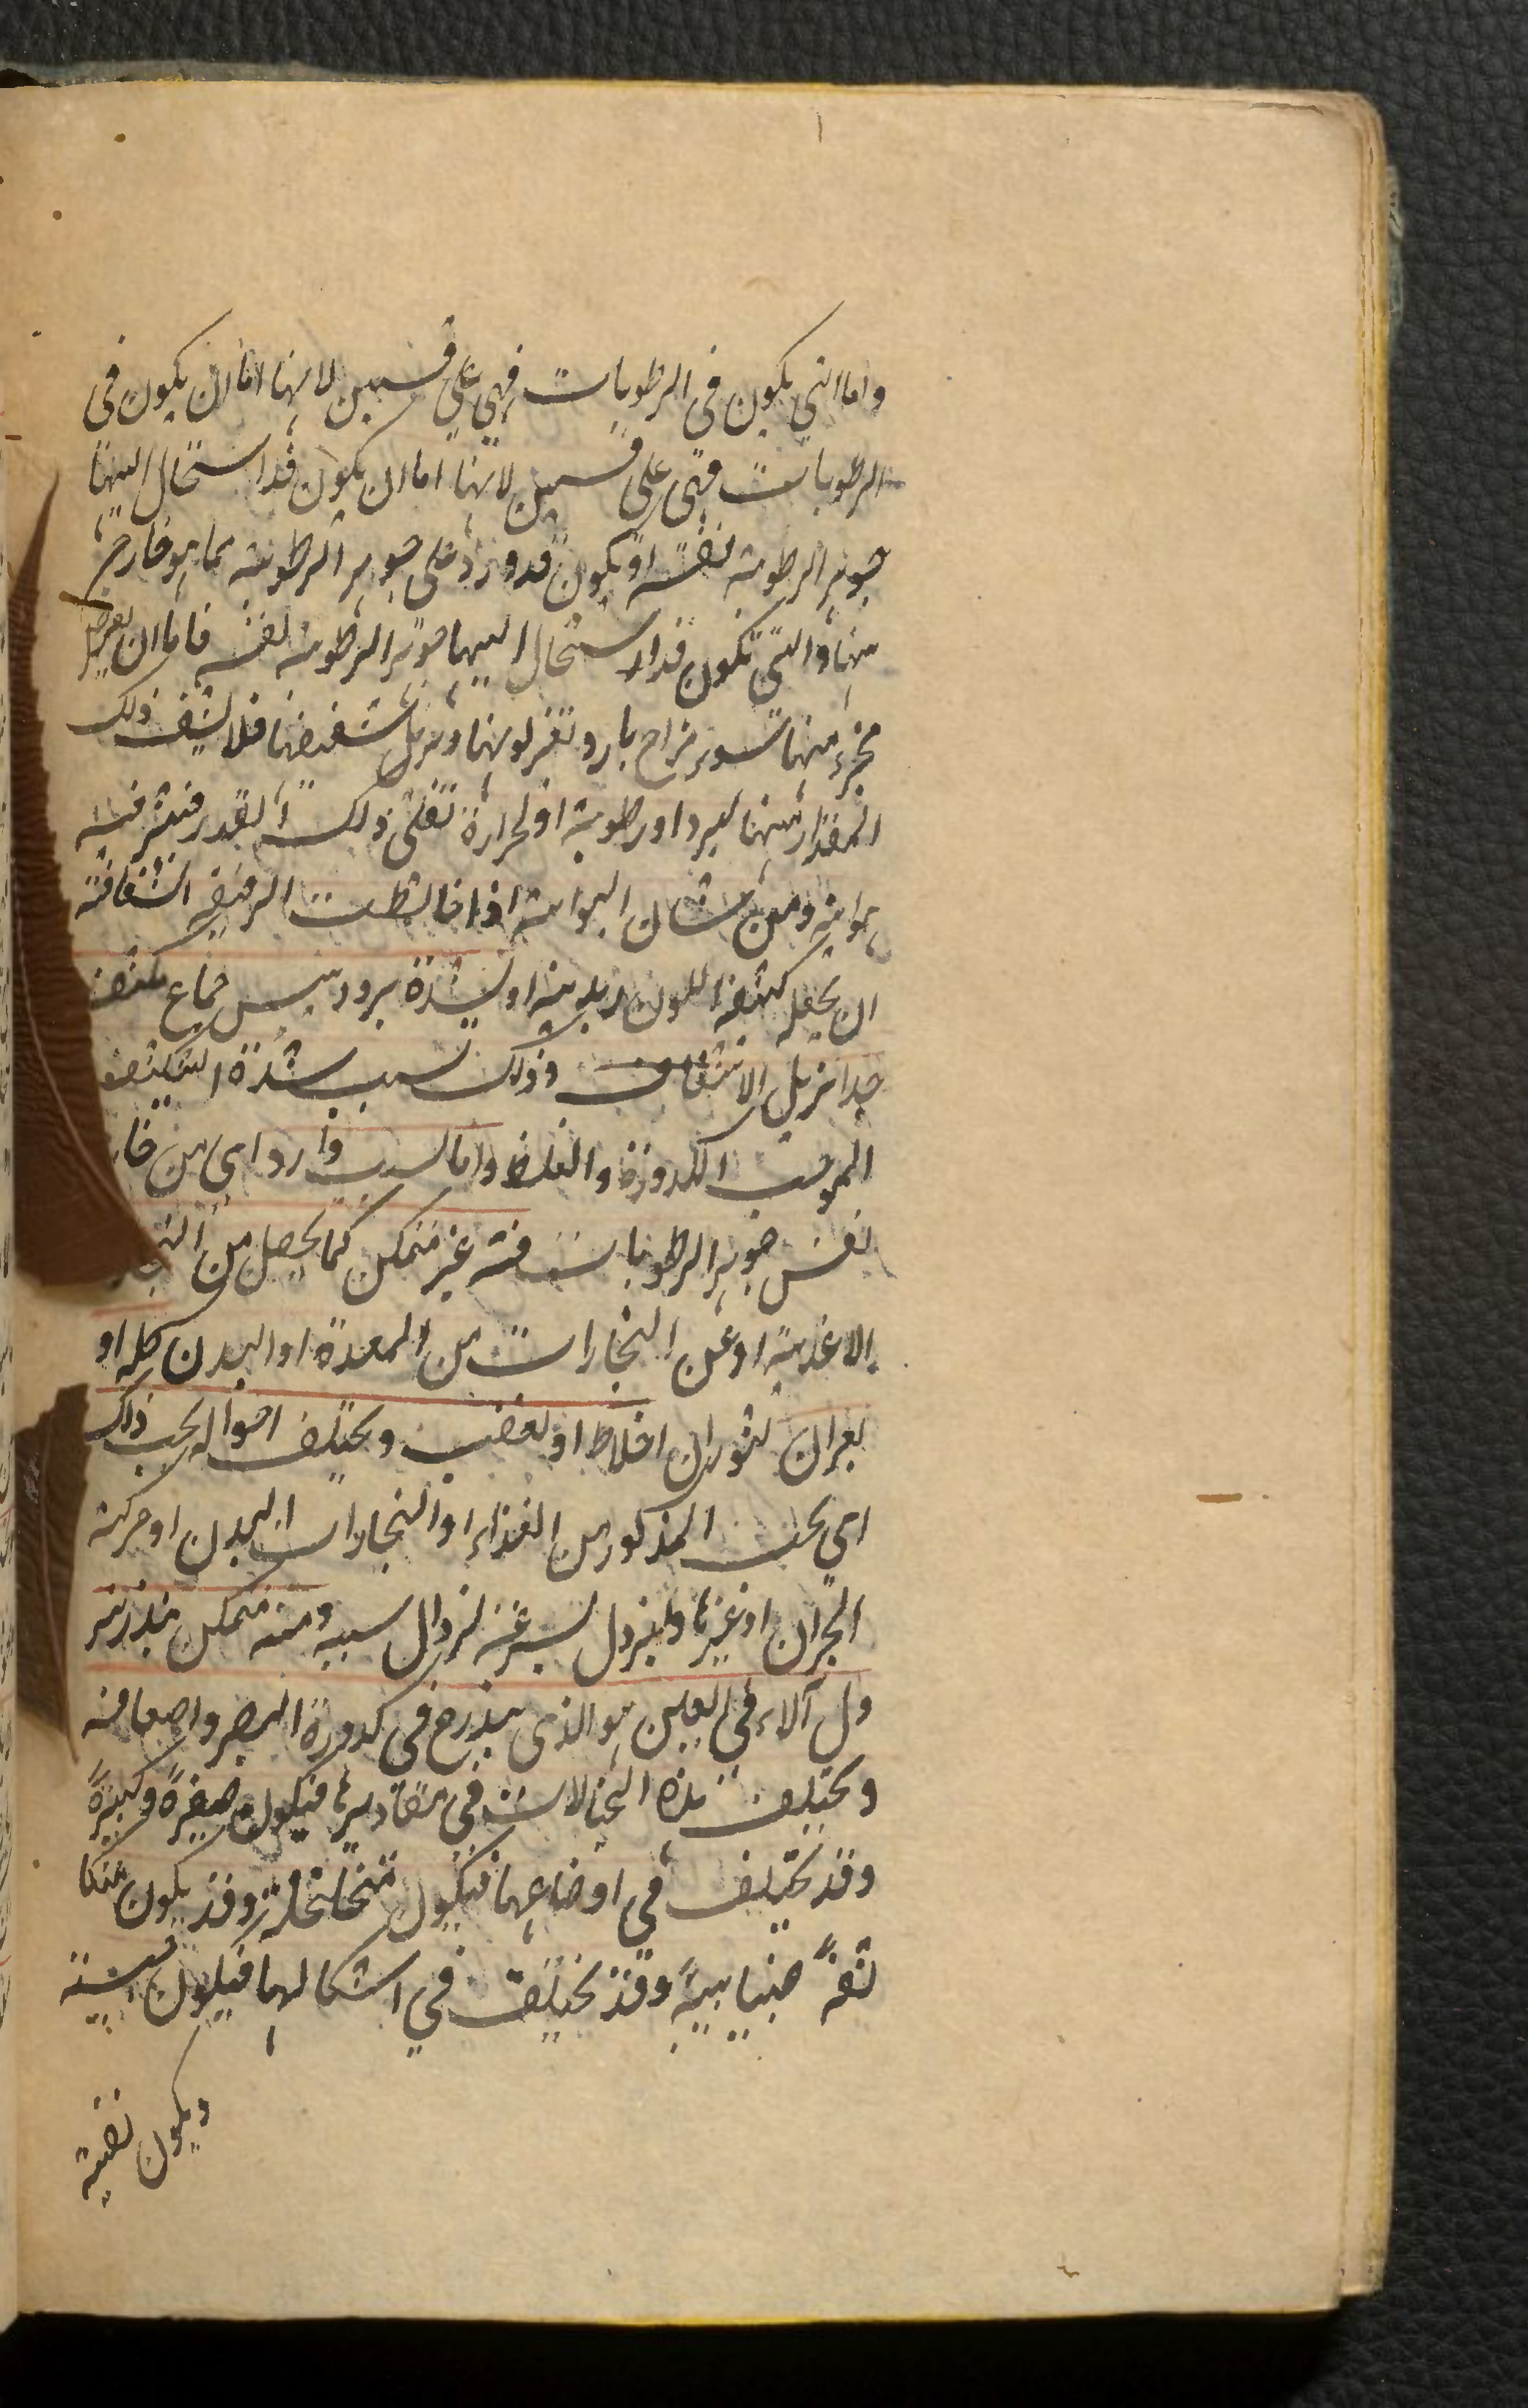 ١
واما التي يكون في الرطوبات فهي على قسمين لانها اما ان يكون في
الرطوبات فهي على قسمين لانها اما ان يكون قد استحال اليها
جوهر الرطوبة نفسه او يكون قد ورد على جوهر الرطوبة مما هو خارج
منها والتي تكون قد استحال اليها جوهر الرطوبة نفسه فاما ان يعرض
لجزء منها سوء مزاج بارد تغير لونها ويزيل شفيفها فلا يشف ذلك
المقدار منها لبرد او رطوبة او لحرارة تغلى ذلك القدر فيثير فيه
هوائية ومن شان الهوائية اذا خالطت الرقيقة الشفافة
ان يجعله كثيفة اللون زبدية او لشدة برد ويبس جماع مكثف
جدا يزيل الاشفاف وذلك بسبب شدة التكثيف
الموجب الكدورة والغلظ واما لسبب وارد اى من خا
نفس جوهر الرطوبات فمنه غير متمكن كما يحصل من
الاغذية او عن البخارات من المعدة او البدن كله او
بحران لثوران اخلاط او لغضب ويختلف احواله بحسب ذلك
اى بحسب المذكور من الغذاء او البخارات البدن او حركة
البحران او غيرها ويزول بسرعة لزوال سببه ومنه متمكن ينذر بنز
ول الماء في العين هو الذى يندرج في كدورة البصر واضعافه
ويختلف هذه الخيالات في مقاديرها فيكون صغيرة وكبيرة
وقد يختلف في اوضاعها فيكون متخلخلة وقد يكون متكا
ثفة ضبابية وقد يختلف في اشكالها فيكون حبيبية
ويكون نقية